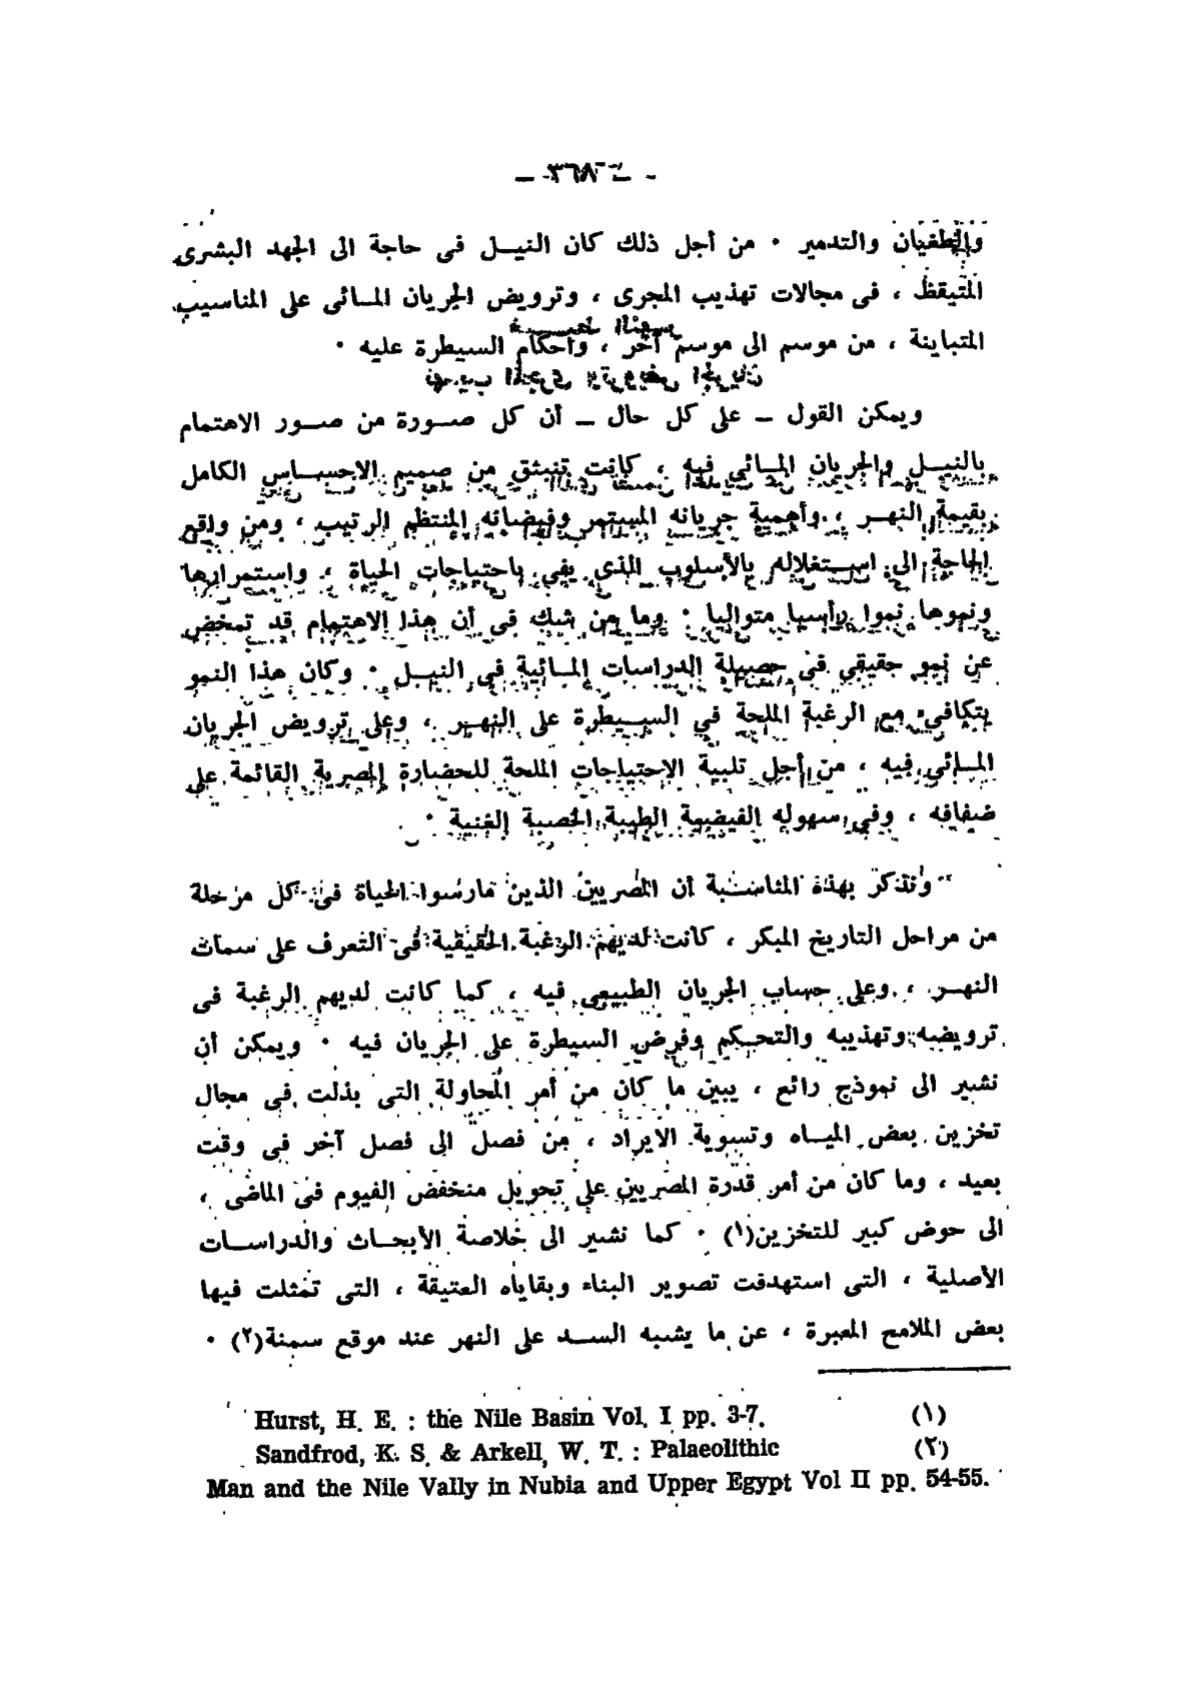 — ٣٦٨ —
والطغيان والتدمير · من أجل ذلك كان النيـل فى حاجة الى الجهد البشرى
المتيقظ ، فى مجالات تهذيب المجرى ، وترويض الجريان المـائى على المناسيب
المتباينة ، من موسم الى موسم آخر ، وأحكام السيطرة عليه ·
ويمكن القول – على كل حال – أن كل صـورة من صـور الاهتمام
بالنيـل والجريان المـائى فيه ، كانت تنبثق من صميم الاحسـاس الكامل
بقيمة النهـر ، وأهمية جريانه المستمر وفيضانه المنتظم الرتيب ، ومن واقع
الحاجة الى اسـتغلاله بالأسلوب الذى يفى باحتياجات الحياة ، واستمرارها
ونموها نموا رأسيا متواليا · وما من شك فى أن هذا الاهتمام قد تمخض
عن نمو حقيقى فى حصيلة الدراسات المـائية فى النيـل · وكان هذا النمو
يتكافىء مع الرغبة الملحة فى السـيطرة على النهـر ، وعلى ترويض الجريان
المـائى فيه ، من أجل تلبية الاحتياجات الملحة للحضارة المصرية القائمة على
ضفافه ، وفى سهوله الفيضية الطيبة الخصبة الغنية ·
ونتذكر بهذه المناسـبة أن المصريين الذين مارسوا الحياة فى كل مرحلة
من مراحل التاريخ المبكر ، كانت لديهم الرغبة الحقيقية فى التعرف على سمات
النهـر ، وعلى حساب الجريان الطبيعى فيه ، كما كانت لديهم الرغبة فى
ترويضه وتهذيبه والتحـكم وفرض السيطرة على الجريان فيه · ويمكن أن
نشير الى نموذج رائع ، يبين ما كان من أمر المحاولة التى بذلت فى مجال
تخزين بعض الميـاه وتسوية الايراد ، من فصل الى فصل آخر فى وقت
بعيد ، وما كان من أمر قدرة المصريين على تحويل منخفض الفيوم فى الماضى ،
الى حوض كبير للتخزين(١) · كما نشير الى خلاصة الأبحـاث والدراسـات
الأصلية ، التى استهدفت تصوير البناء وبقاياه العتيقة ، التى تمثلت فيها
بعض الملامح المعبرة ، عن ما يشبه السـد على النهر عند موقع سمنة(٢) ·
(١) Hurst, H. E. : the Nile Basin Vol. I pp. 3-7.
(٢) Sandfrod, K. S. & Arkell, W. T. : Palaeolithic
Man and the Nile Vally in Nubia and Upper Egypt Vol II pp. 54-55.